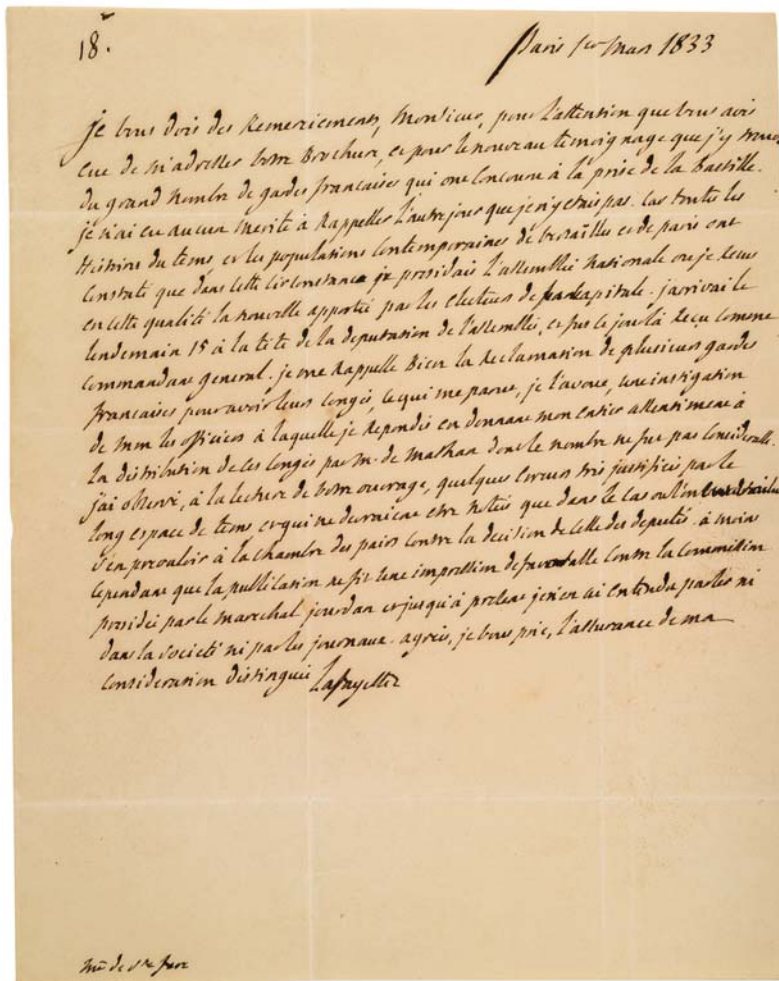 18.
Paris 1er Mars 1833
je vous dois des Remerciements, Monsieur, pour l'attention que vous avés
eue de m'adresser votre Brochure, et pour le nouveau temoignage que j'y trouve
du grand nombre de gardes francaises qui ont Concouru à la prise de la Bastille.
je n'ai eu aucun merite à Rappeller l'autre jour que je n'y etais pas. Car toutes les
Histoires du tems, et les populations Contemporaines de versailles et de paris ont
Constaté que dans cette Circonstance je présidais l'assemblée Nationale ou je Recus
en cette qualité la nouvelle apportée par les electeurs de la Capitale. j'arrivai le
lendemain 15 à la tête de la deputation de l'assemblée, et fus ce jour là Reçu Comme
Commandant general. je me Rappelle Bien la Reclamation de plusieurs gardes
francaises pour avoir leurs Congés, ce qui me parut, je l'avoue, une instigation
de Mrs les officiers à laquelle je Repondis en donnant mon entier assentiment à
la distribution de ces Congés par Mr. de Mathan dont le nombre ne fut pas Considerable.
j'ai observé, à la lecture de votre ouvrage, quelques erreurs très justifiées par le
long espace de tems et qui ne devraient etre Notées que dans le cas ou l'on voudrait
s'en prevaloir à la chambre des pairs Contre la decision de Celle des deputés. à moins
Cependant que la publication ne fit une impression defavorable Contre la Commission
presidée par le Marechal jourdan et jusqu'à présent je n'en ai entendu parler ni
dans la société ni par les journaux. agréés, je vous prie, l'assurance de ma
Consideration distinguée Lafayette